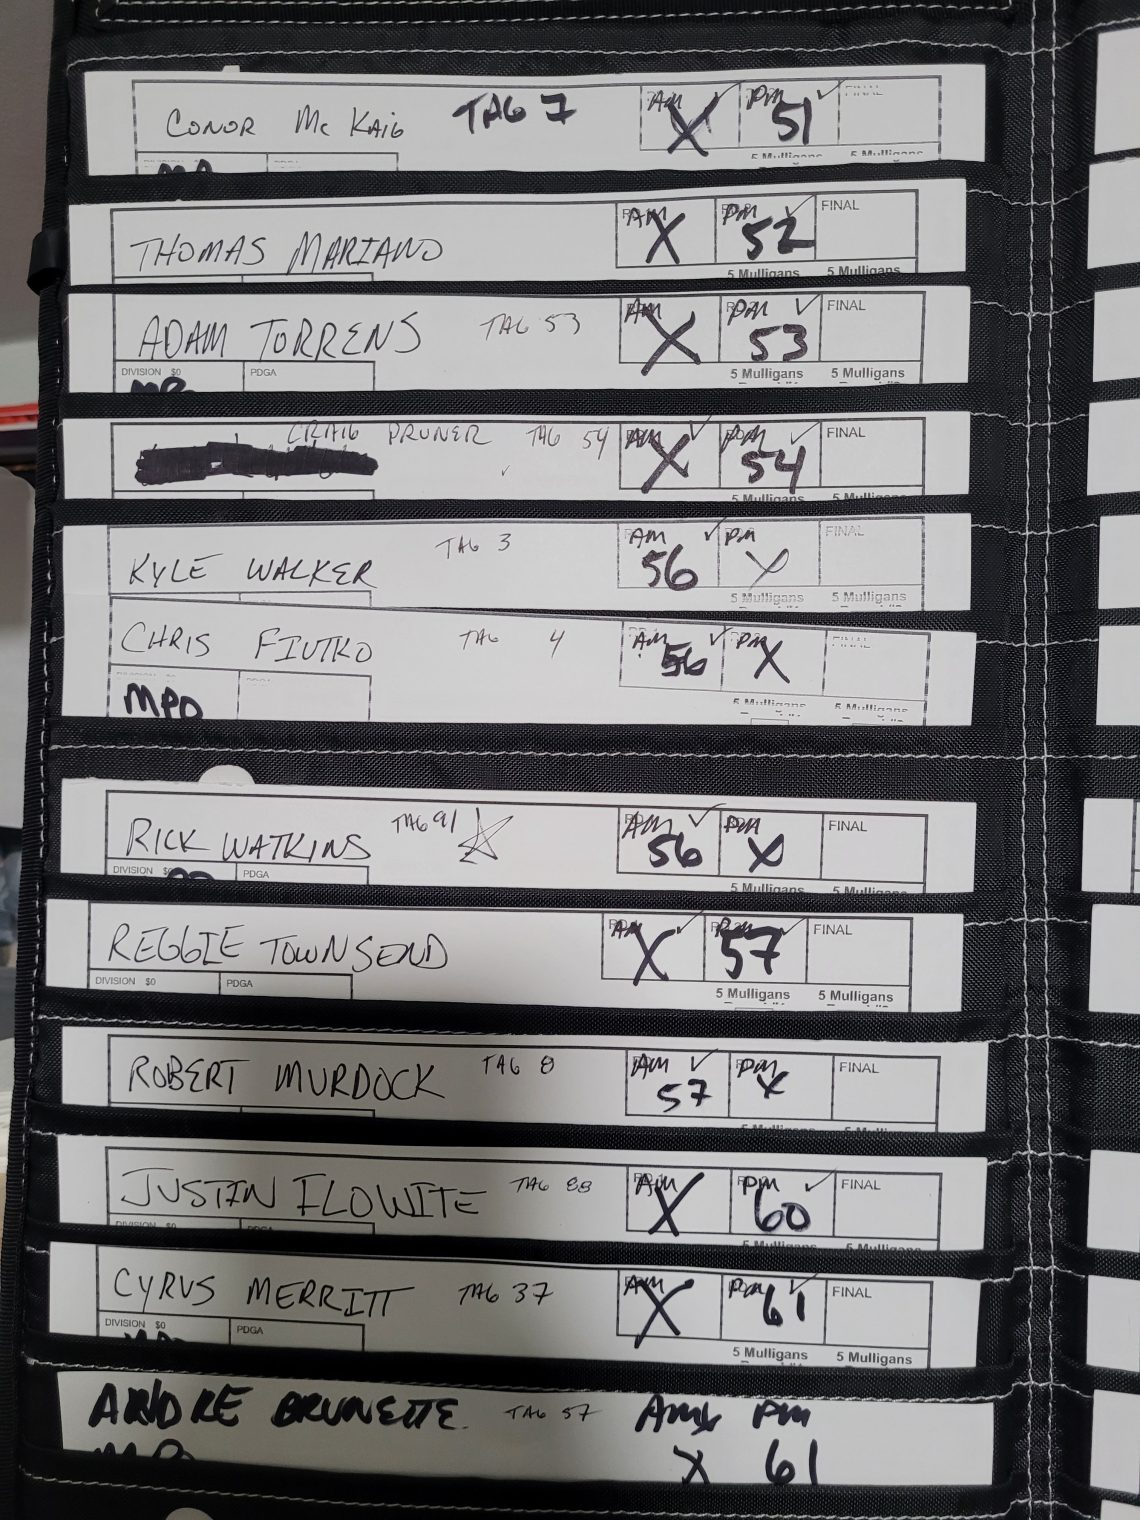 CONOR Mc KAIG TAG 7 AM X PM 51 FINAL
5 Mulligans 5 Mulligans
THOMAS MARIANO AM X PM 52 FINAL
5 Mulligans 5 Mulligans
ADAM TORRENS TAG 53 AM X PM 53 FINAL
DIVISION $0 PDGA 5 Mulligans 5 Mulligans
CRAIG PRUNER TAG 54 AM X PM 54 FINAL
5 Mulligans 5 Mulligans
KYLE WALKER TAG 3 AM 56 PM X FINAL
5 Mulligans 5 Mulligans
CHRIS FIUTKO TAG 4 AM 56 PM X FINAL
MPO 5 Mulligans 5 Mulligans
RICK WATKINS TAG 91 AM 56 PM X FINAL
DIVISION PDGA 5 Mulligans 5 Mulligans
REGGIE TOWNSEND AM X PM 57 FINAL
DIVISION $0 PDGA 5 Mulligans 5 Mulligans
ROBERT MURDOCK TAG 8 AM 57 PM X FINAL
5 Mulligans 5 Mulligans
JUSTIN ILOWITE TAG 88 AM X PM 60 FINAL
DIVISION $0 PDGA 5 Mulligans 5 Mulligans
CYRUS MERRITT TAG 37 AM X PM 61 FINAL
DIVISION $0 PDGA 5 Mulligans 5 Mulligans
ANDRE BRUNETTE TAG 57 AM PM
X 61